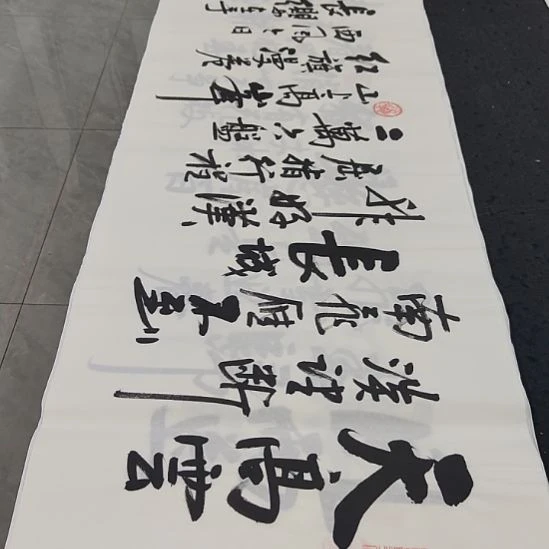 天高雲
淡望断
南飛雁不到
長城
非好漢
屈指行程
二萬六盤
山上高峰
红旗漫卷
西風今日
長纓在手